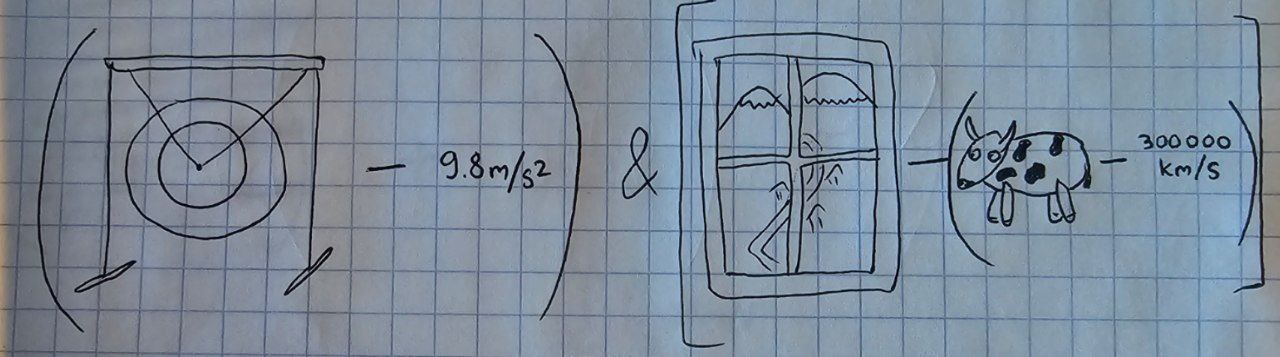 ( — 9.8m/s2 ) & [ — ( — 300000
km/s ) ]